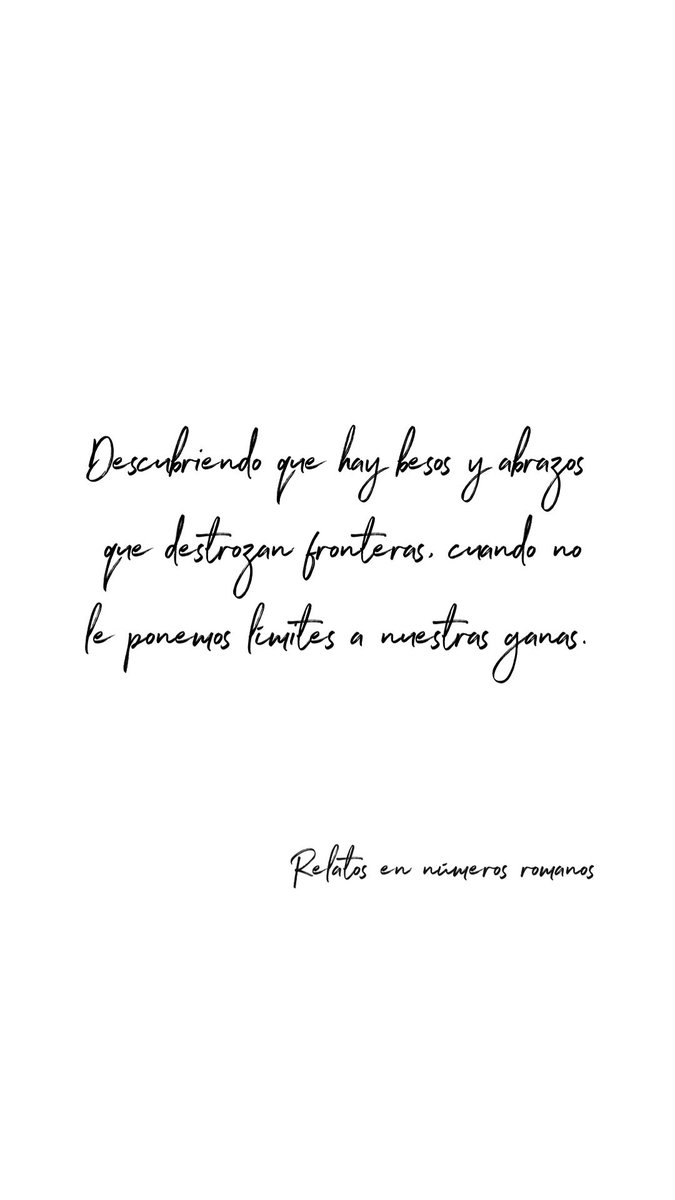 Descubriendo que hay besos y abrazos
que destrozan fronteras, cuando no
le ponemos límites a nuestras ganas.
Relatos en números romanos